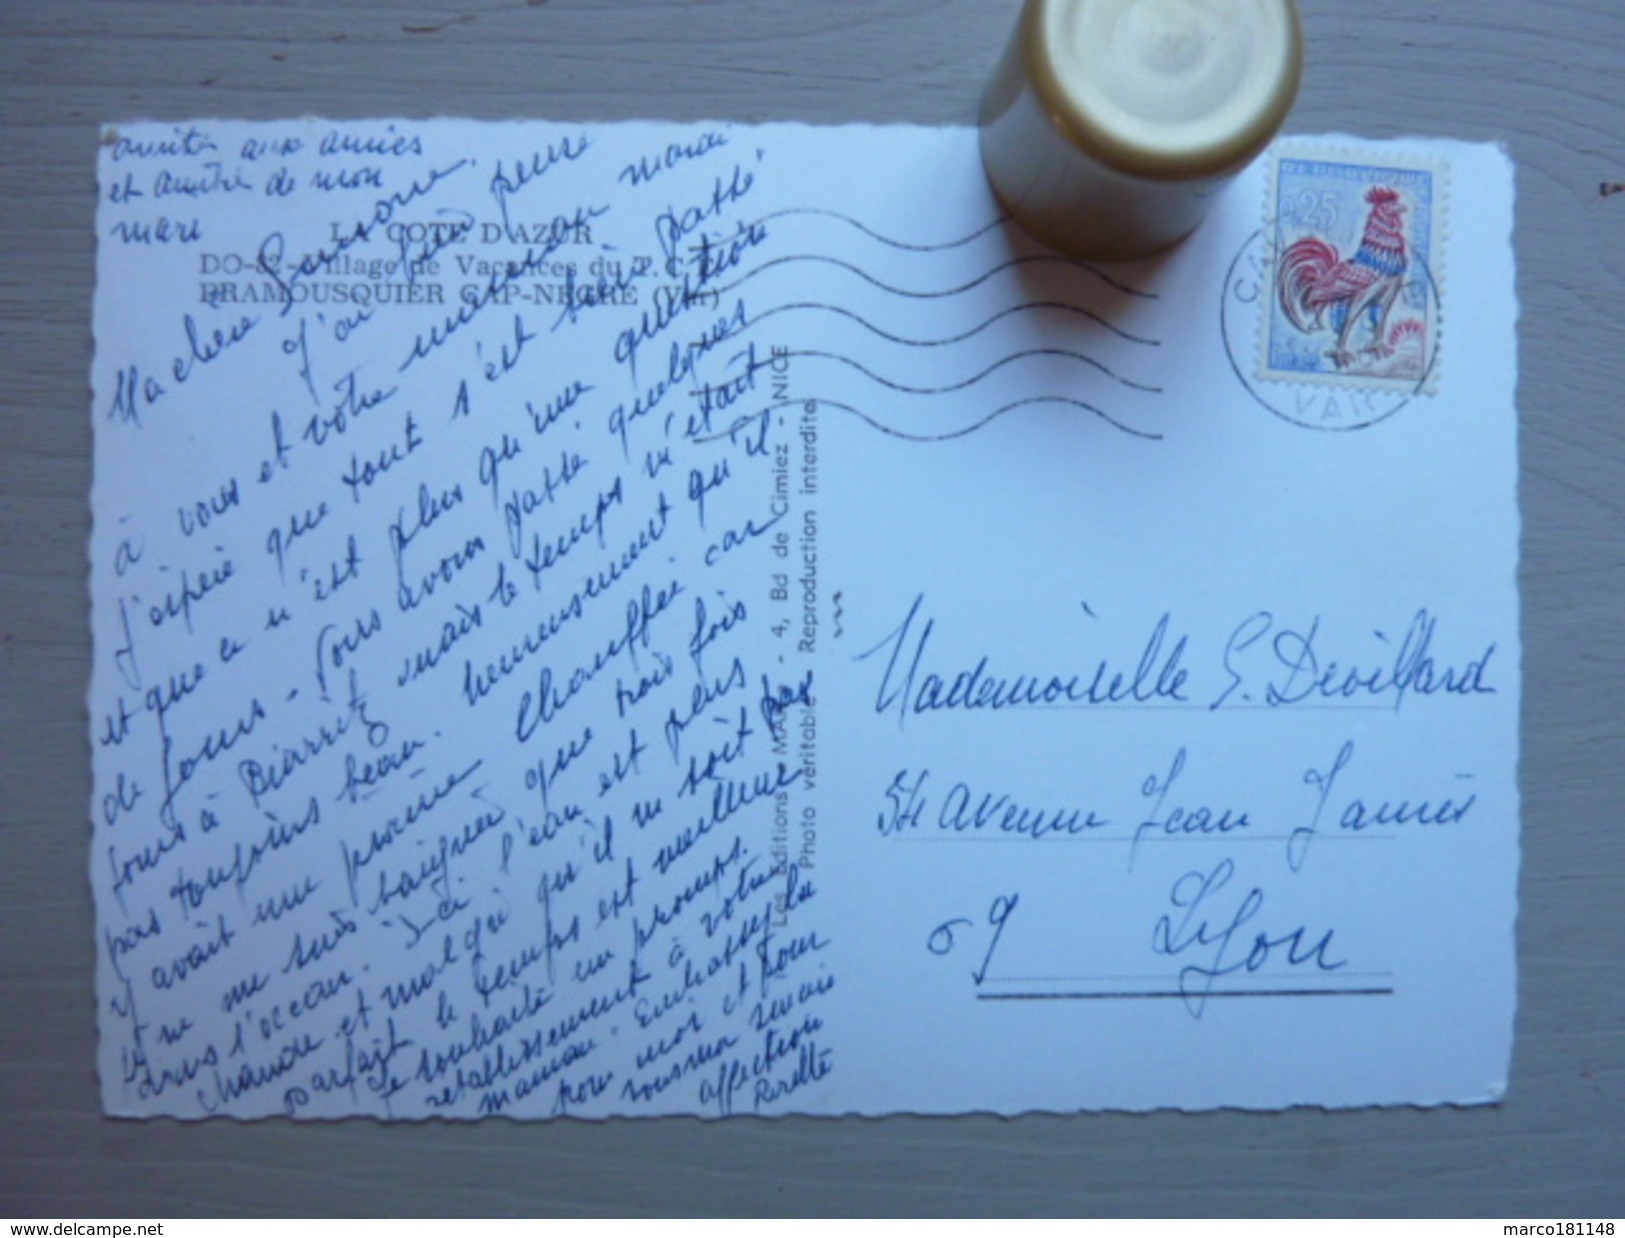 amitiés aux amies
et amitié de mon
mari
LA COTE D'AZUR
DO-82 - Village de Vacances du T.C.F.
PRAMOUSQUIER CAP-NEGRE (Var)
Ma chère Simone.
J'ai bien pensé
à vous et votre maman mardi
j'espère que tout s'est bien passé
et que ce n'est plus qu'une question
de jours - Nous avons passé quelques
jours à Biarritz mais le temps n'était
pas toujours beau. heureusement qu'il
y avait une piscine chauffée car
je ne me suis baignée que trois fois
dans l'océan. Ici l'eau est plus
chaude et malgré qu'il ne soit pas
parfait le temps est meilleur
Je souhaite un prompt
rétablissement à votre
maman. Embrassez la
pour moi et pour
vous ma
affection
Les Editions MAR - 4, Bd de Cimiez - NICE
Photo véritable Reproduction interdite
REPUBLIQUE
0,25
VAR
Mademoiselle S. Devillard
54 avenue Jean Jaurès
69 Lyon
www.delcampe.net
marco181148